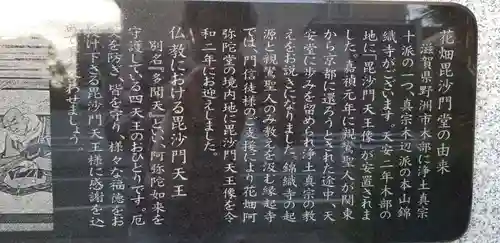 花畑毘沙門堂の由来
滋賀県野洲市木部に浄土真宗
十派の一つ、真宗木辺派の本山錦
織寺がございます。天安二年木部の
地に『毘沙門天王像』が安置されま
した。嘉禎元年に親鸞聖人が関東
から京都に還ろうとされた途中、天
安堂に歩みを留められ浄土真宗の教
えをお説きになりました。錦織寺の起
源と親鸞聖人のみ教えを汲む縁起寺
では、門信徒様のご支援により花畑阿
弥陀堂の境内地に毘沙門天王像を令
和二年にお迎えしました。
仏教における毘沙門天王
別名『多聞天』といい、阿弥陀如来を
守護している四天王のおひとりです。厄
災を防ぎ、皆を守り、様々な福徳をお
授け下さる毘沙門天王様に感謝を込
わせましょう